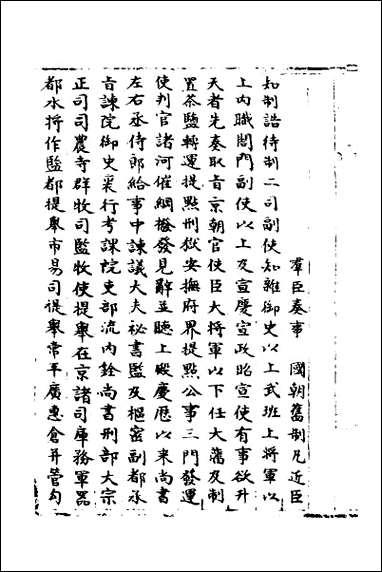 羣臣奏事　國朝舊制凡近臣
知制誥待制二司副使知雜御史以上武班上將軍以
上內職閤門副使以上及宣慶宣政昭宣使有事欲升
天者先奏取旨京朝官使臣大將軍以下任大藩及制
置茶鹽轉運提點刑獄安撫府界提點公事三門發運
使判官諸河催綱撥發見辭並聽上殿慶曆以來尚書
左右丞侍郎給事中諫議大夫祕書監及樞密副都承
旨諫院御史裏行考課院吏部流內銓尚書刑部大宗
正司司農寺群牧司監牧使提舉在京諸司庫務軍器
都水將作監都提舉市易司提舉常平廣惠倉幷管勾